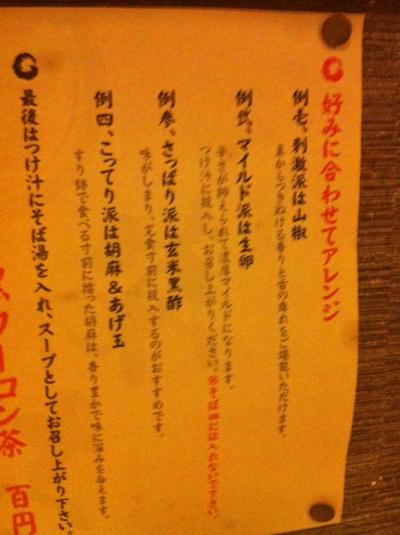 好みに合わせてアレンジ
例壱、刺激派は山椒
鼻からつきぬける香りと舌の痺れをご堪能いただけます。
例弐、マイルド派は生卵
辛さが抑えられて濃厚マイルドになります。
つけ汁に投入し、お召し上がりください。※そば皿には入れないで下さい。
例参、さっぱり派は玄米黒酢
味がしまり、完食寸前に投入するのがおすすめです。
例四、こってり派は胡麻&あげ玉
すり鉢で食べる寸前に擂った胡麻は、香り豊かで味に深みを与えます。
最後はつけ汁にそば湯を入れ、スープとしてお召し上がり下さい。
ウーロン茶 百円